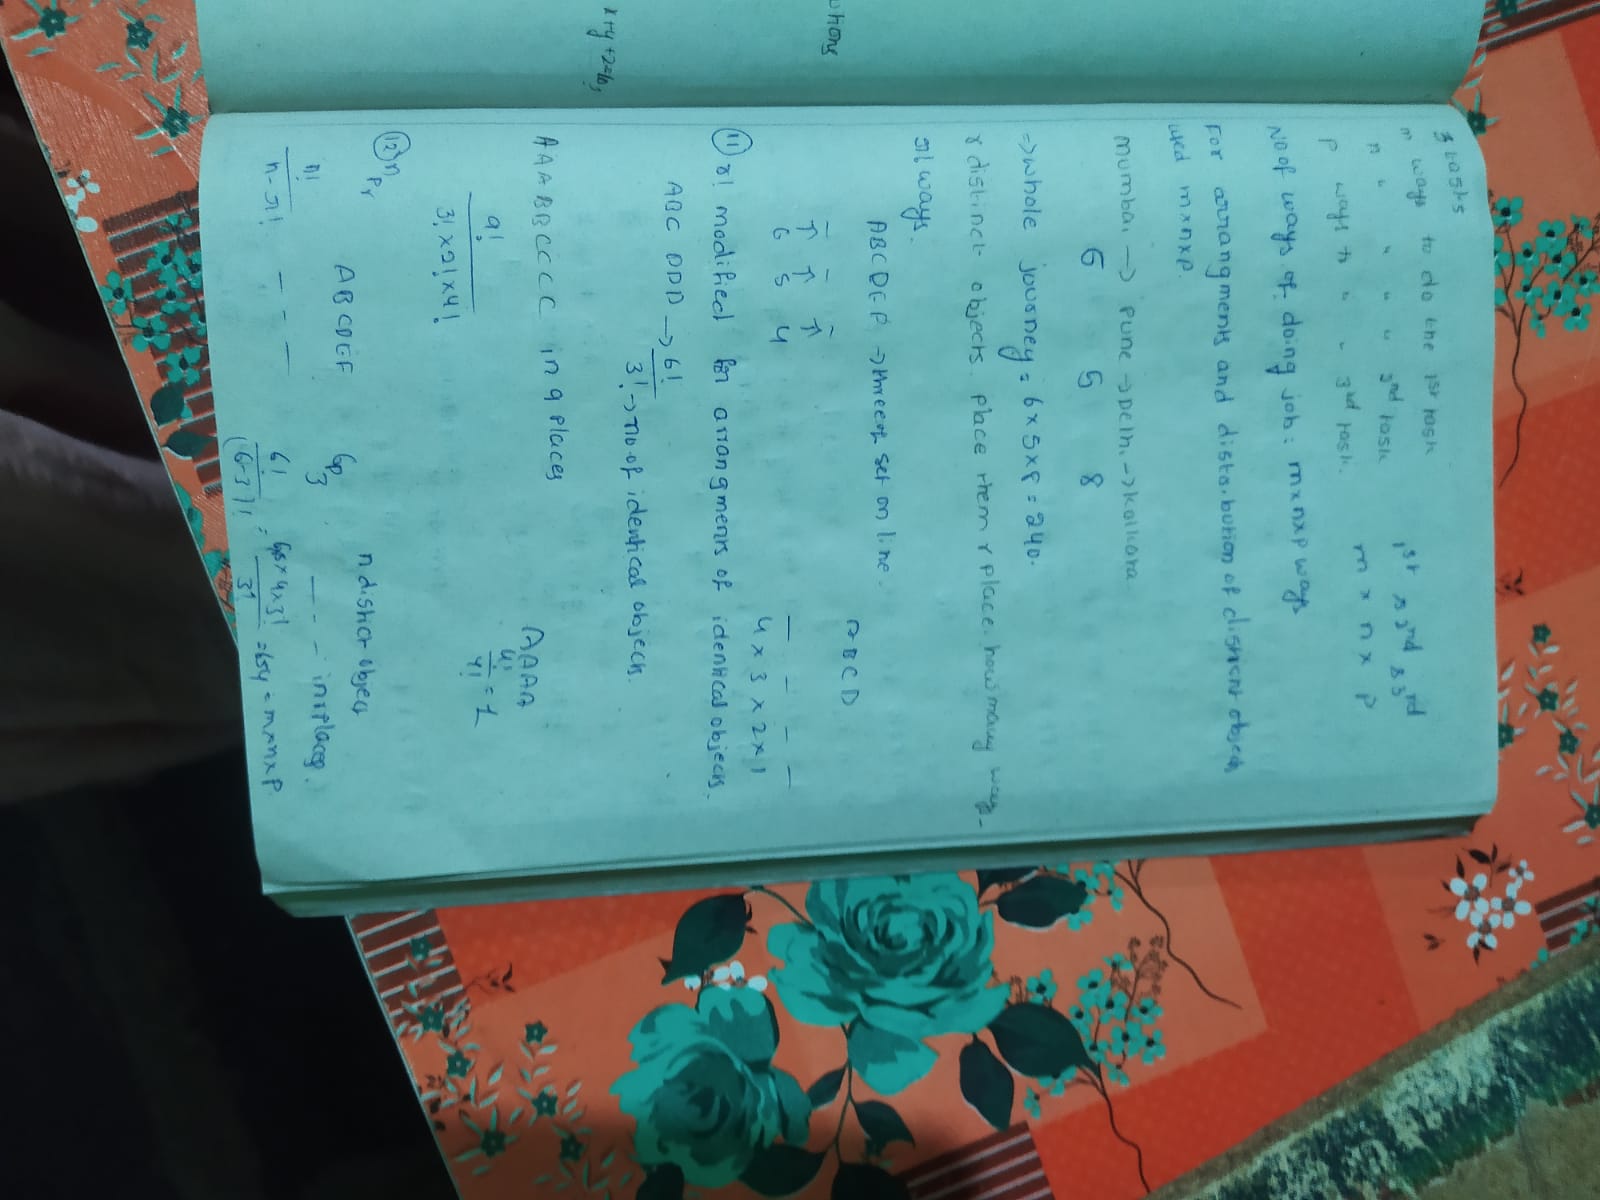 utions
x+y+z=10,
3 tasks
m ways to do the 1st task
n " " " 2nd task
p ways to " " 3rd task.
1st & 2nd & 3rd
m × n × p
No of ways of doing job: m×n×p ways
For arrangments and distribution of distinct objects
used m×n×p.
Mumbai → Pune → Delhi → Kolkata
6 5 8
⇒ whole journey = 6 × 5 × 8 = 240.
r distinct objects place them r place. how many ways-
r! ways.
ABCDEF → three set on line.
6 5 4
ABCD
4 × 3 × 2 × 1
⑪ r! modified for arrangments of identical objects.
ABC DDD → 6!
3! → no of identical objects.
AAABBCCCC in 9 places
9!
3! × 2! × 4!
AAAA
4!
4! = 1
⑫ nPr
ABCDEF
n distinct object
6P3
in r places.
n!
n-r!
6!
(6-3)! = 6×5×4×3!
3! = 654 = m×n×p